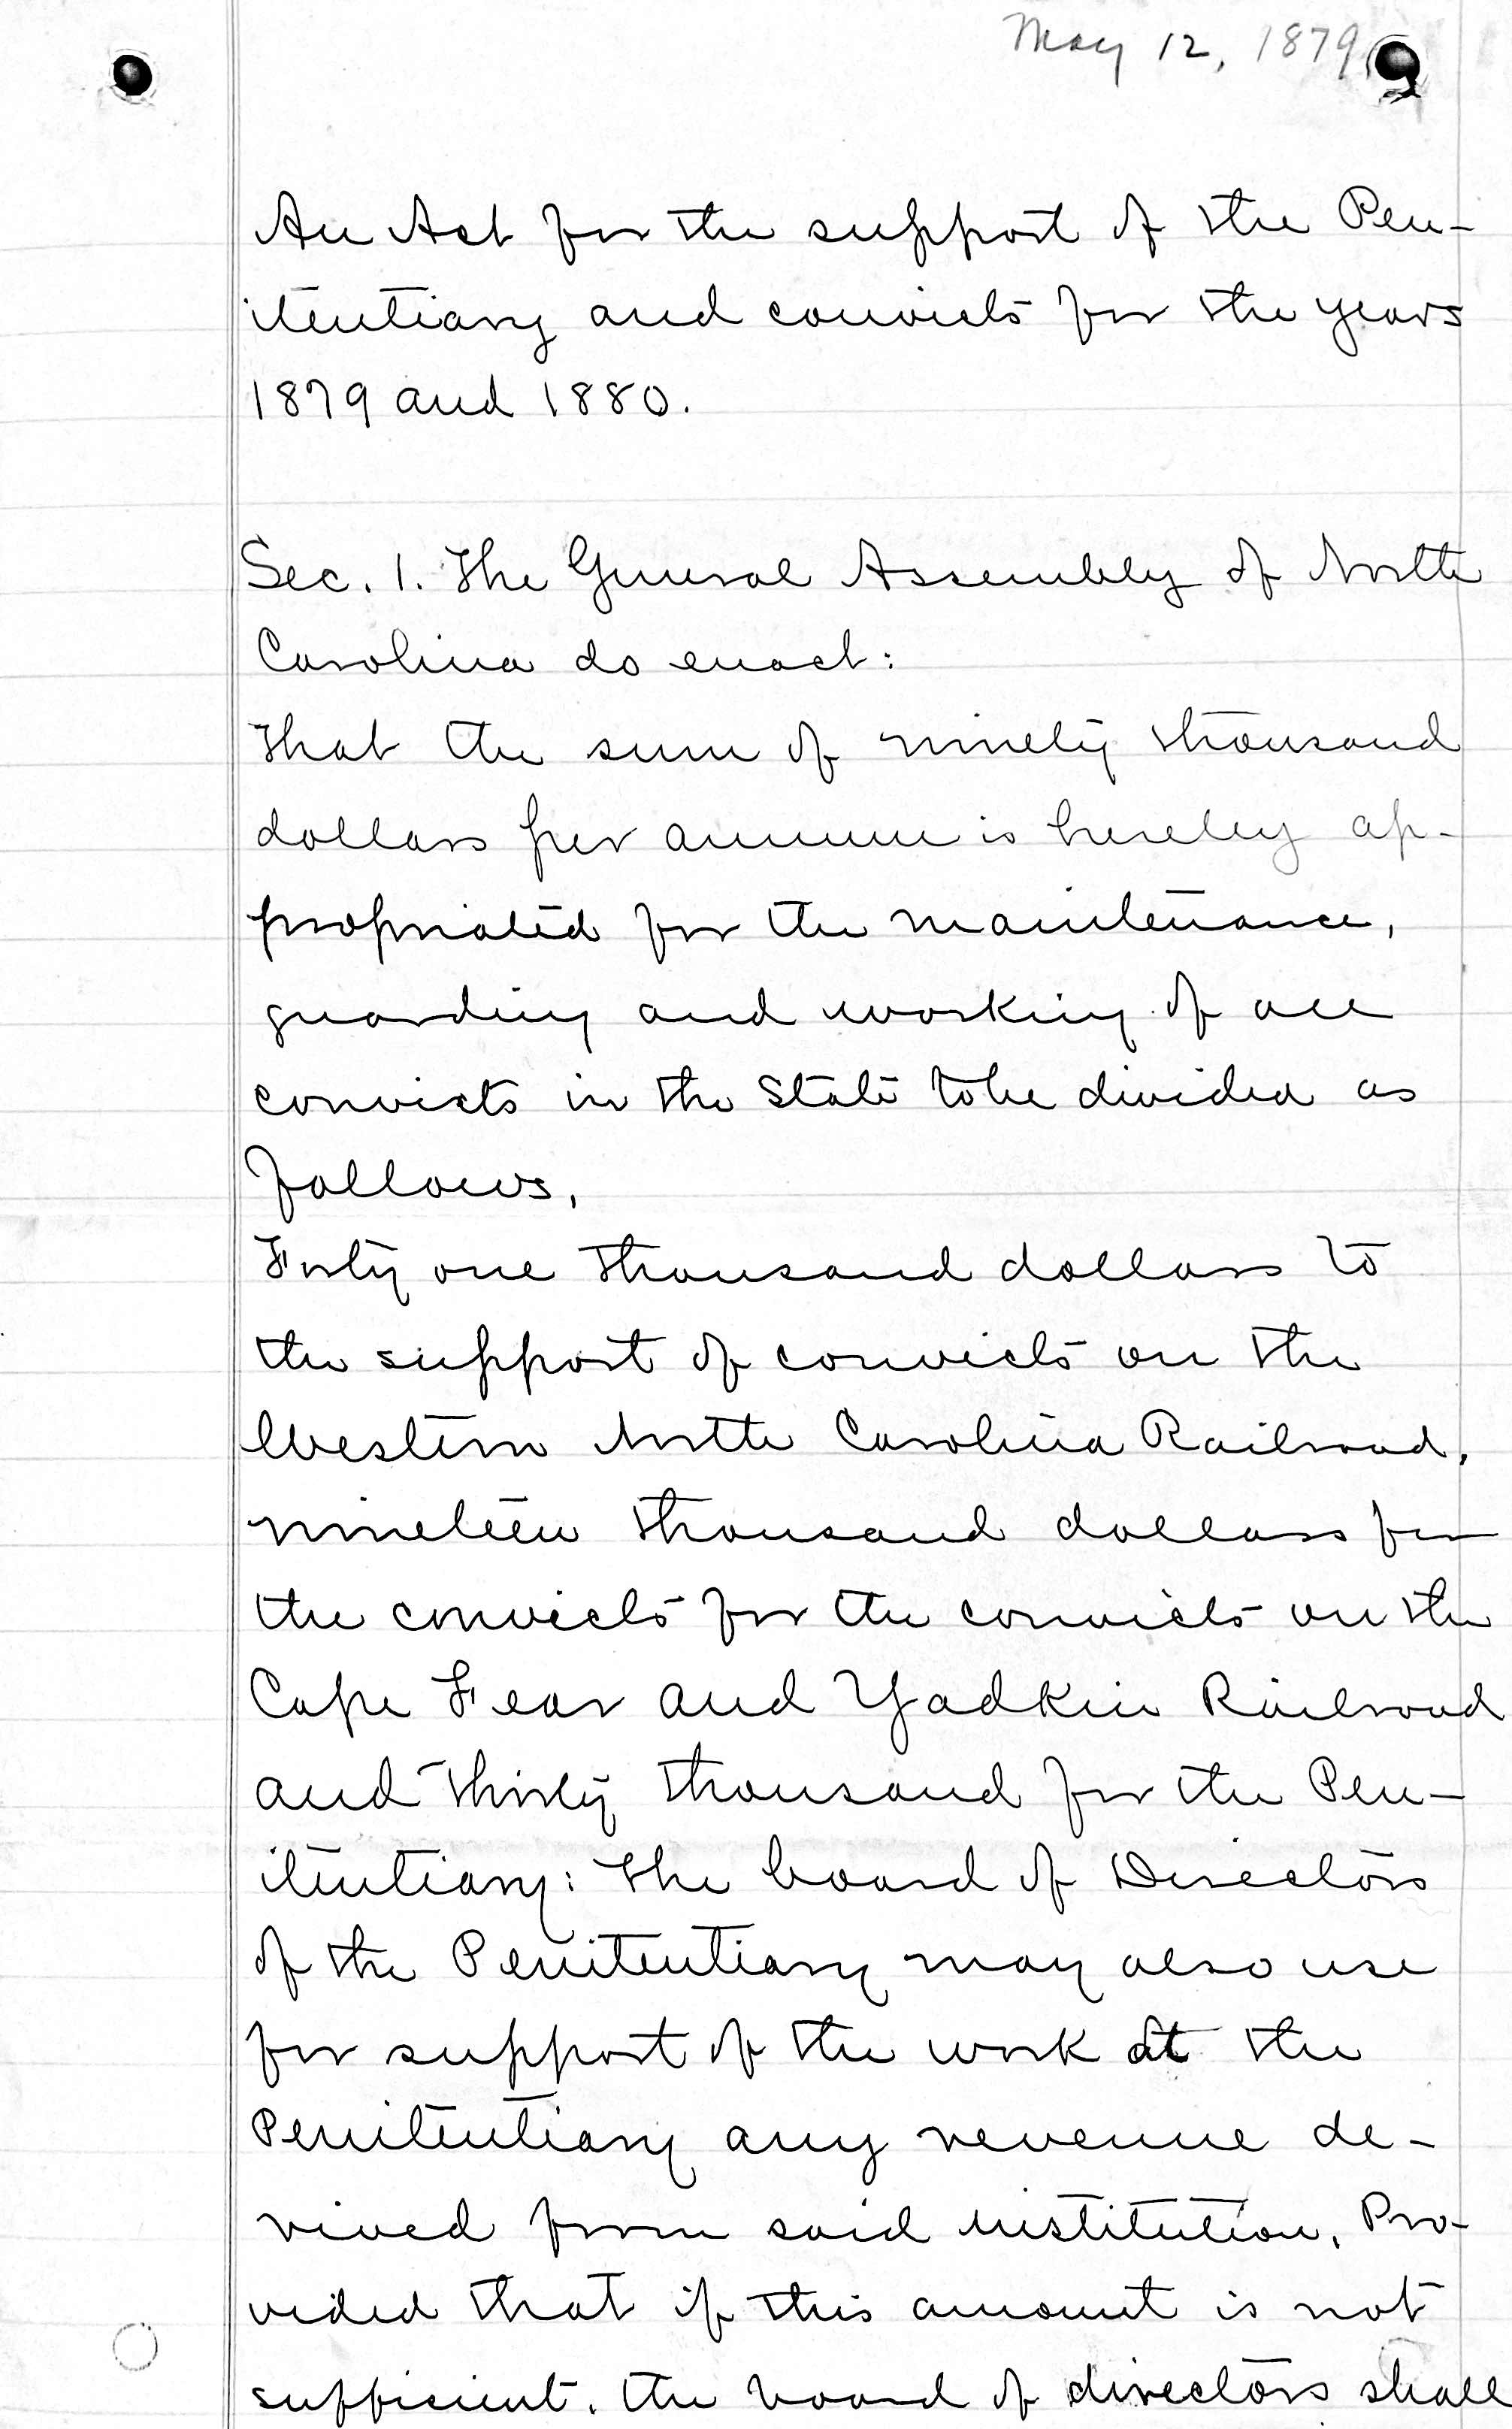 May 12, 1879
An Act for the support of the Pen-
itentiary and convicts for the years
1879 and 1880.
Sec. 1. The General Assembly of North
Carolina do enact:
That the sum of ninety thousand
dollars per annum is hereby ap-
propriated for the maintenance,
guarding and working of all
convicts in the State to be divided as
follows,
Forty one thousand dollars to
the support of convicts on the
Western North Carolina Railroad,
nineteen thousand dollars for
the convicts for the convicts on the
Cape Fear and Yadkin Railroad
and thirty thousand for the Pen-
itentiary: The board of Directors
of the Penitentiary may also use
for support of the work at the
Penitentiary any revenue de-
rived from said institution, Pro-
vided that if this amount is not
sufficient, the board of directors shall